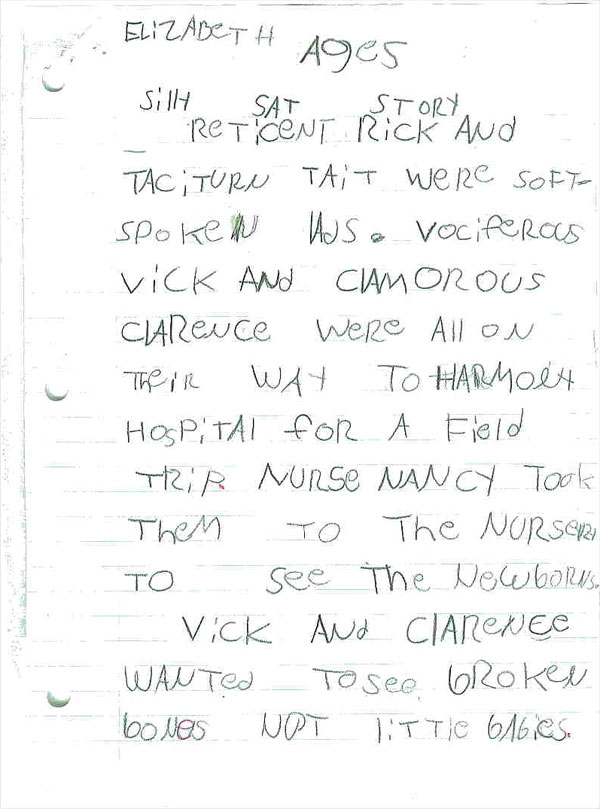 ELiZABETH Age5
Silly SAT STORY
ReTiCENT RiCK AND
TACiTURN TAiT weRe SOFT-
SPOKEN lAdS. VOCifeROUS
ViCK ANd ClAMOROUS
ClAReNCe weRe All ON
THeiR WAY TO HARMONY
HOSPiTAl foR A field
TRiP. NURSe NANCY TOOK
THeM TO THe NURSeRY
TO See THe NewboRNS.
ViCK ANd ClAReNCe
WANTed TO See bROKeN
boNes NOT liTTle bAbies.